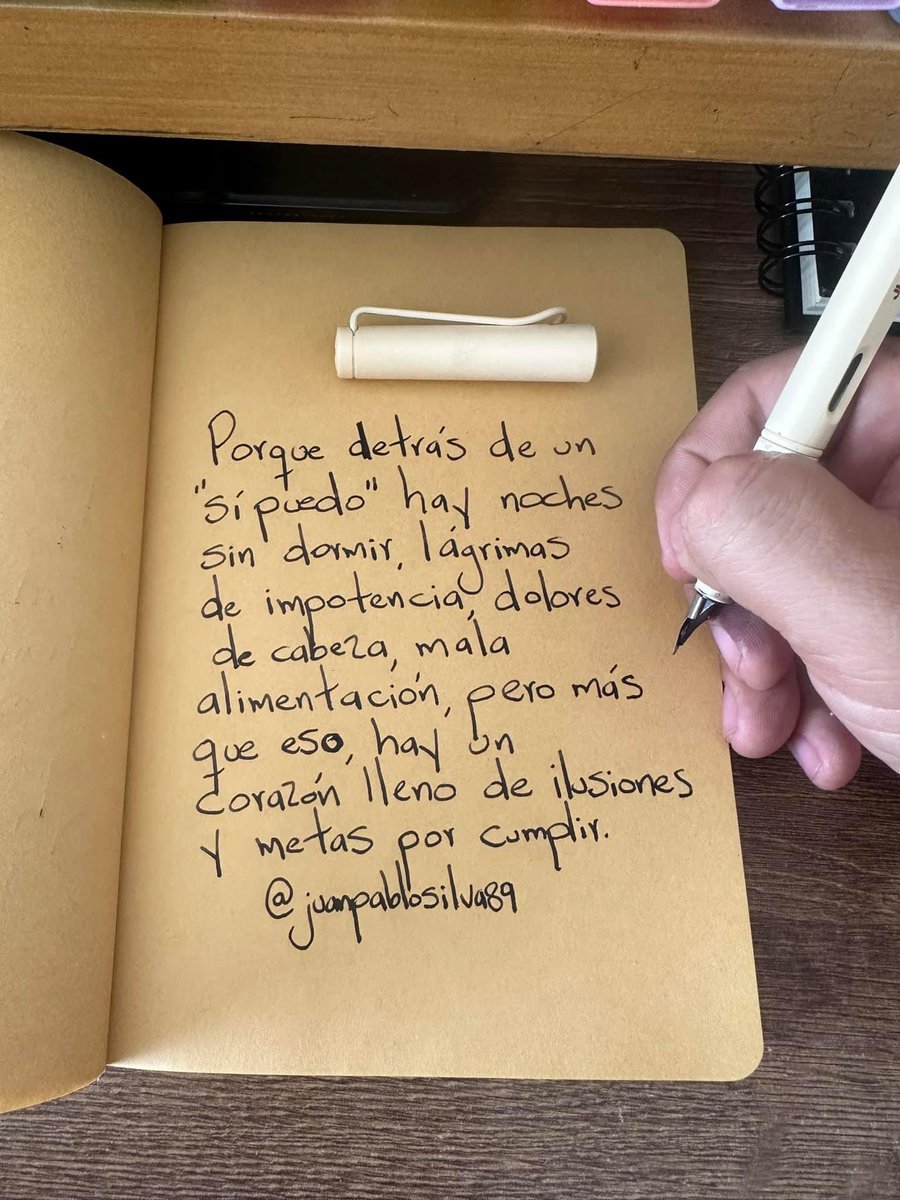 Porque detrás de un
"sí puedo" hay noches
sin dormir, lágrimas
de impotencia, dolores
de cabeza, mala
alimentación, pero más
que eso, hay un
corazón lleno de ilusiones
y metas por cumplir.
@juanpablosilva89